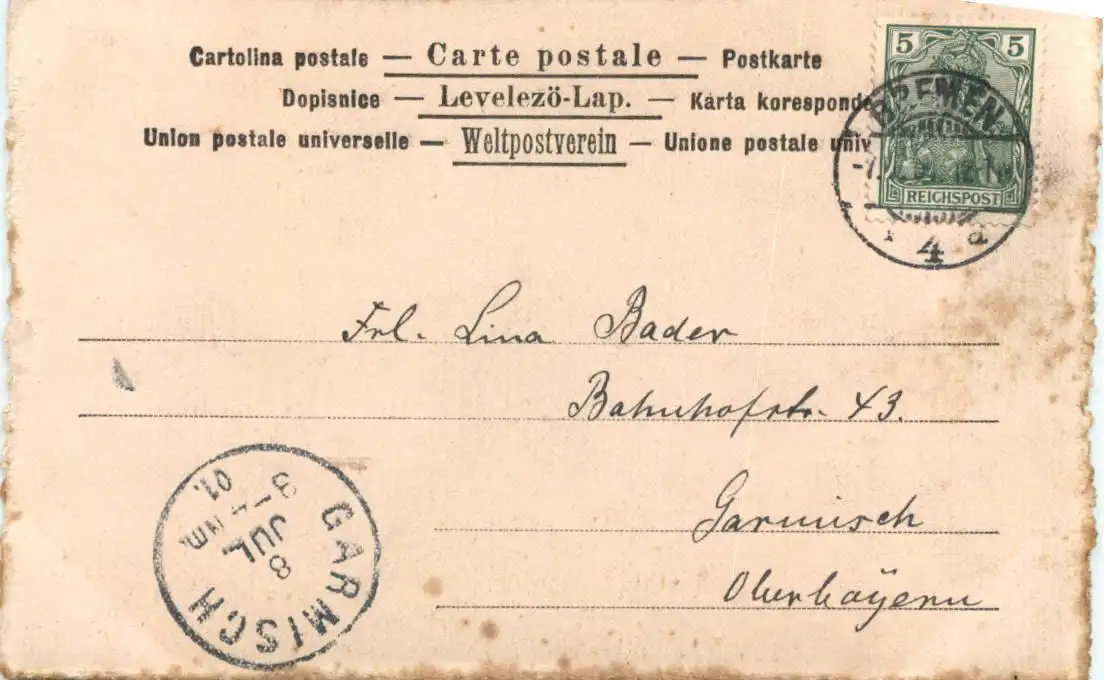 Cartolina postale — Carte postale — Postkarte
Dopisnice — Levelezö-Lap. — Karta koresponde
Union postale universelle — Weltpostverein — Unione postale univ
5 5
REICHSPOST
BREMEN
4
Frl. Lina Bader
Bahnhofstr. 43.
Garmisch
Oberbayern
GARMISCH
8 JUL
01.